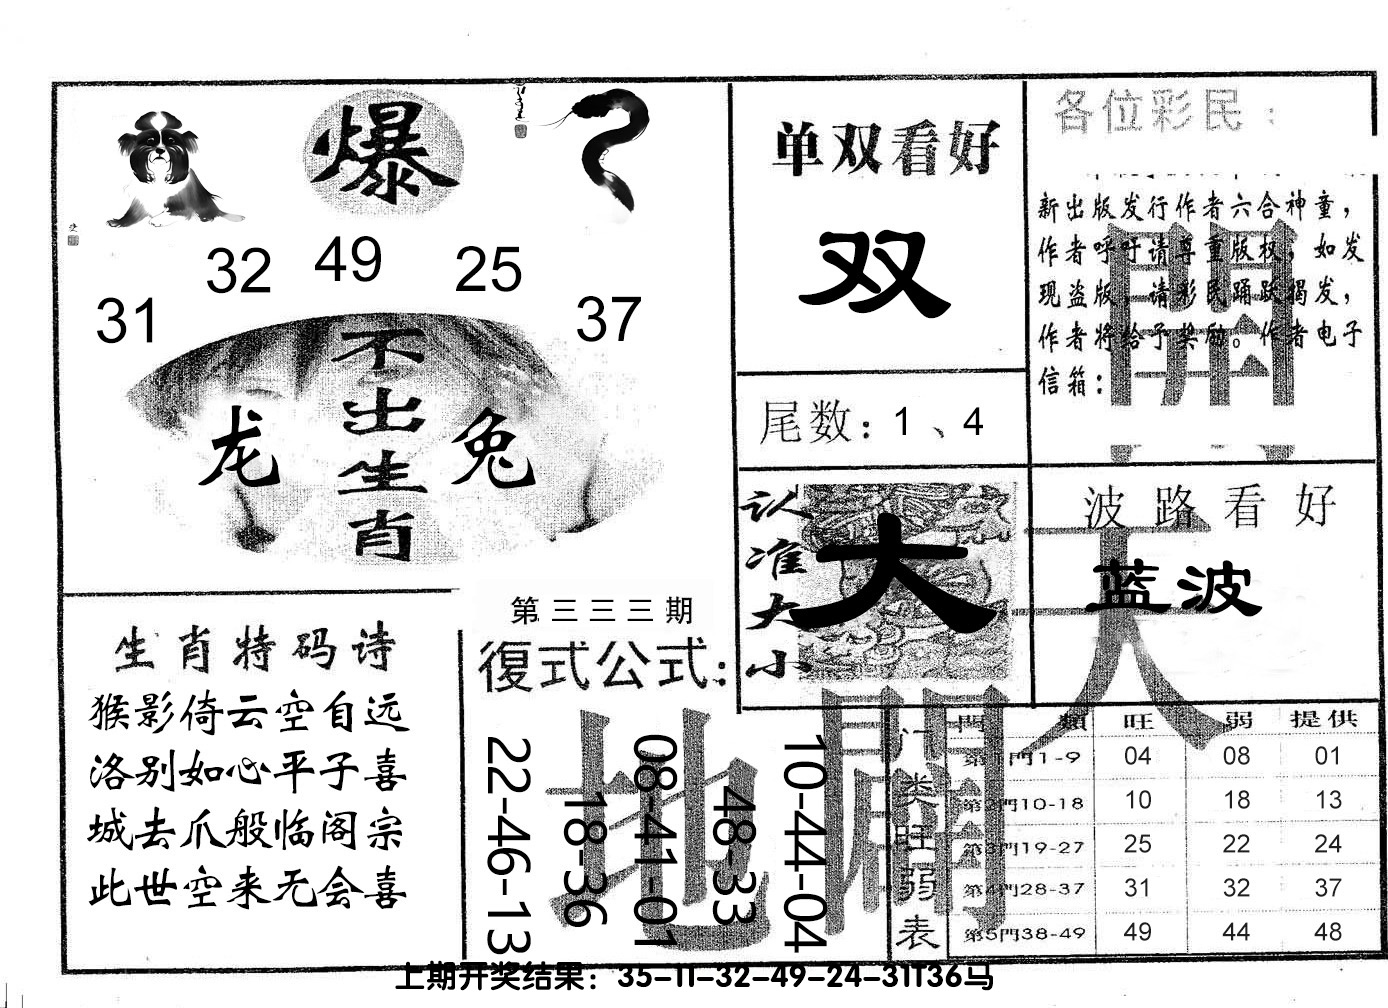 爆
31
32
49
25
37
不出生肖
龙
兔
单双看好
双
尾数：1、4
各位彩民：
新出版发行作者六合神童，
作者呼吁请尊重版权，如发
现盗版，请彩民踊跃揭发，
作者将给予奖励。作者电子
信箱：
認准大小
大
波路看好
蓝波
天
開
地
闢
生肖特码诗
猴影倚云空自远
洛别如心平子喜
城去爪般临阁宗
此世空来无会喜
第三三三期
復式公式：
22-46-13
18-36
08-41-01
48-33
10-44-04
门类旺弱表
門類 旺 弱 提供
第1門1-9 04 08 01
第2門10-18 10 18 13
第3門19-27 25 22 24
第4門28-37 31 32 37
第5門38-49 49 44 48
上期开奖结果：35-11-32-49-24-31T36马